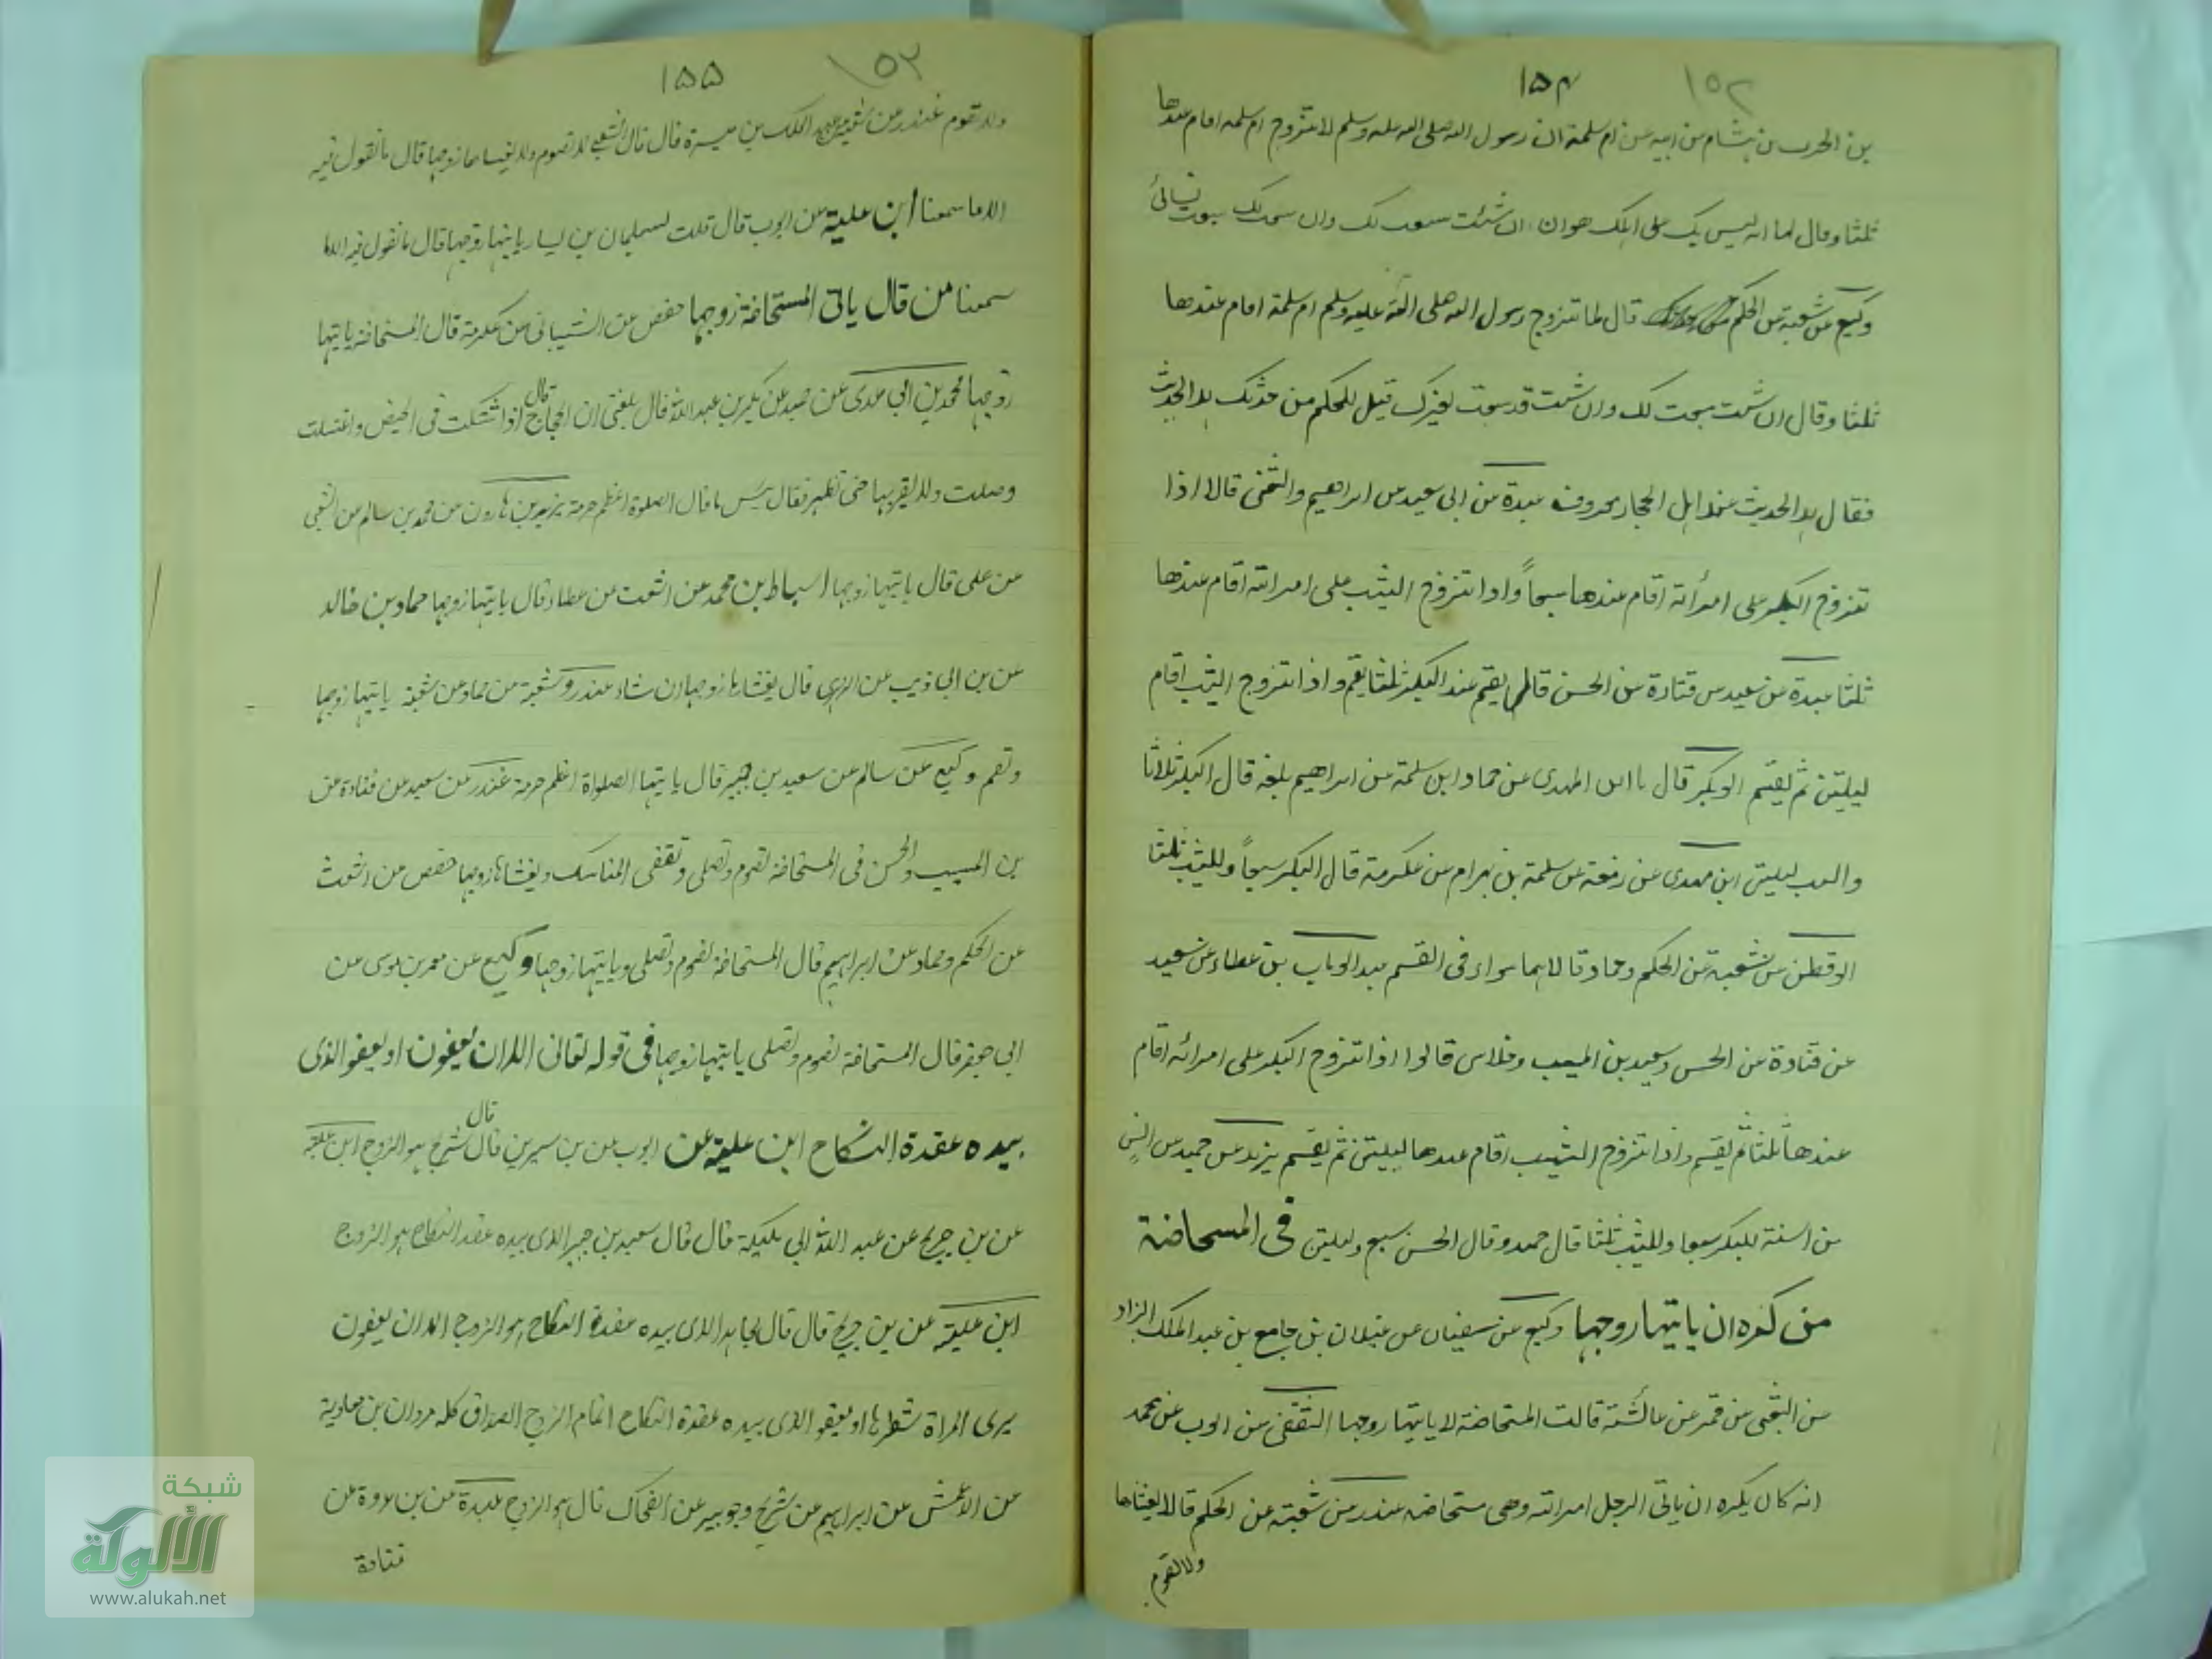 ١٥٢
١٥٤
بن الحرب بن هشام من ابيه من ام سلمة ان رسول الله صلى الله عليه وسلم لما تزوج ام سلمه اقام عندها
ثلثا وقال لها انه ليس بك على اهلك هوان ان شئت سبعت لك وان سبعت لك سبعت نسائى
وكيع عن شعبة عن الحكم قال لما تزوج رسول الله صلى الله عليه وسلم ام سلمة اقام عندها
ثلثا وقال ان شئت سبعت لك وان شئت قد سبعت لغيرك قيل للحكم من حدثك هذا الحديث
فقال هذا الحديث عند اهل الحجاز معروف عبدة عن ابى سعيد عن ابراهيم والشعبى قالا اذا
تزوج البكر على امرأته اقام عندها سبعاً واذا تزوج الثيب على امرأته اقام عندها
ثلثا عبدة عن سعيد عن قتادة عن الحسن قال يقيم عند البكر ثلثا يقم واذا تزوج الثيب اقام
ليلتين ثم يقسم ابو بكر قال نا ابن المهدى عن حماد ابن سلمة عن ابراهيم بلغه قال البكر ثلاثا
والثيب ليلتين ابن مهدى عن زمعه عن سلمة بن بهرام عن عكرمة قال البكر سبعاً وللثيب ثلثا
ابو قطن عن شعبة عن الحكم وحماد قالا هما سواء فى القسم عبد الوهاب بن عطاء عن سعيد
عن قتادة عن الحسن وسعيد بن المسيب وخلاس قالوا اذا تزوج البكر على امرأته اقام
عندها ثلثا ثم يقسم واذا تزوج الثيب اقام عندها ليلتين ثم يقسم يزيد عن حميد عن انس
من السنة للبكر سبعا وللثيب ثلثا قال حميد وقال الحسن سبع وليلتين فى المسحاضة
من كره ان ياتيها زوجها وكيع عن سفيان عن غيلان بن جامع بن عبد الملك الزاد
عن الشعبى عن قمر عن عائشة قالت المستحاضة لا ياتيها زوجها الثقفى عن ايوب عن محمد
انه كان يكره ان ياتى الرجل امراته وهى مستحاضه غندر عن شعبة عن الحكم قال لا يغشاها
ولا تقوم
١٥٣
١٥٥
ولا تقوم غندر عن شعبة عن عبد الملك بن ميسرة قال قال الشعبى لا تصوم ولا يغشاها زوجها قال ما نقول فيه
الا ما سمعنا ابن علية عن ايوب قال قلت لسليمان بن يسار ياتيها زوجها قال ما نقول فيه الا ما
سمعنا من قال ياتى المستحاضة زوجها حفص عن الشيبانى عن عكرمة قال المستحاضة ياتيها
زوجها محمد بن ابي عدى عن حميد عن بكر بن عبد الله قال بلغنى ان الحجاج قال اذا شكت فى الحيض واغتسلت
وصلت ولا يقربها حتى تطهر فقال بئس ما قال الصلوة اعظم حرمة يزيد بن هارون عن محمد بن سالم عن الشعبى
عن على قال ياتيها زوجها اسباط بن محمد عن اشعث عن عطاء قال ياتيها زوجها حماد بن خالد
عن بن ابي ذيب عن الزهرى قال يغشاها زوجها ان شاء غندر وشعبة عن حماد عن شعبة ياتيها زوجها
وتقم وكيع عن سالم عن سعيد بن جبير قال ياتيها الصلواة اعظم حرمة غندر عن سعيد عن قتادة عن
بن المسيب والحسن فى المستحاضة تصوم وتصلى وتقضى المناسك ويغشاها زوجها حفص عن اشعث
عن الحكم وحماد عن ابراهيم قال المستحاضة تصوم وتصلى وياتيها زوجها وكيع عن معمر بن موسى عن
ابي جعفر قال المستحاضة تصوم وتصلى ياتيها زوجها فى قوله تعالى الا ان يعفون او يعفو الذى
بيده عقدة النكاح ابن علية عن ايوب عن بن سيرين قال قال شريح هو الزوج ابن علية
عن بن جريج عن عبد الله ابي مليكة قال قال سعيد بن جبير الذى بيده عقد النكاح هو الزوج
ابن علية عن بن جريج قال قال مجاهد الذى بيده عقدة النكاح هو الزوج الا ان يعفون
يرى المراة شطرها او يعفو الذى بيده عقدة النكاح اتمام الزوج الصداق كله مروان بن معاوية
عن الاعمش عن ابراهيم عن شريح وجويبر عن الضحاك قال هو الزوج عبدة عن بن عروة عن
قتادة
شبكة
الألوكة
www.alukah.net